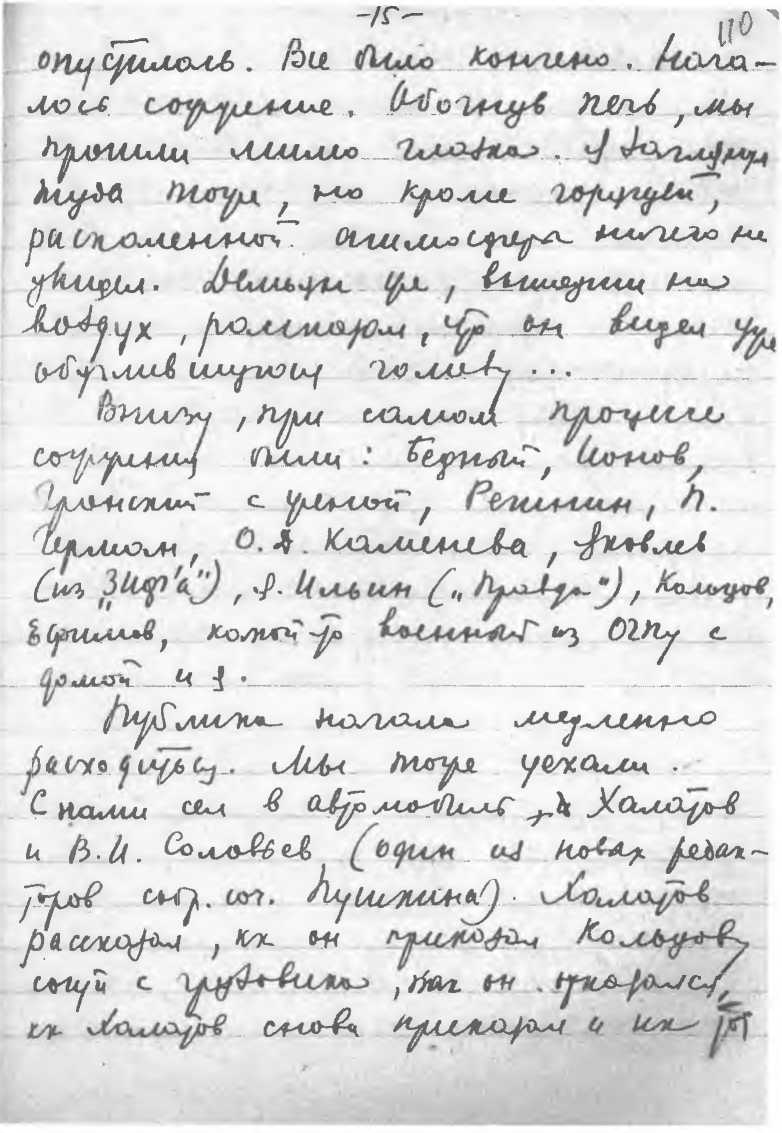 -15-
110
опустилось. Все было кончено. Нача-
лось сожжение. Обогнув печь, мы
прошли мимо глазка. Я заглянул
туда тоже, но кроме горящей,
раскаленной атмосферы ничего не
увидел. Демьян же, вышедши на
воздух, рассказал, что он видел уже
обуглившуюся голову...
Внизу, при самом процессе
сожжения были: Бедный, Ионов,
Гронский с женой, Регинин, П.
Герман, О.Д. Каменева, Яковлев
(из "ЗИФ'а"), Я. Ильин („Правда"), Кольцов,
Ефимов, какой-то военный из ОГПУ с
дамой и я.
Публика начала медленно
расходиться. Мы тоже уехали.
С нами сел в автомобиль Халатов
и В.И. Соловьев (один из новых редак-
торов собр. соч. Пушкина). Халатов
рассказал, кк он приказал Кольцову
сойти с грузовика, как он отказался,
кк Халатов снова приказал и кк тот